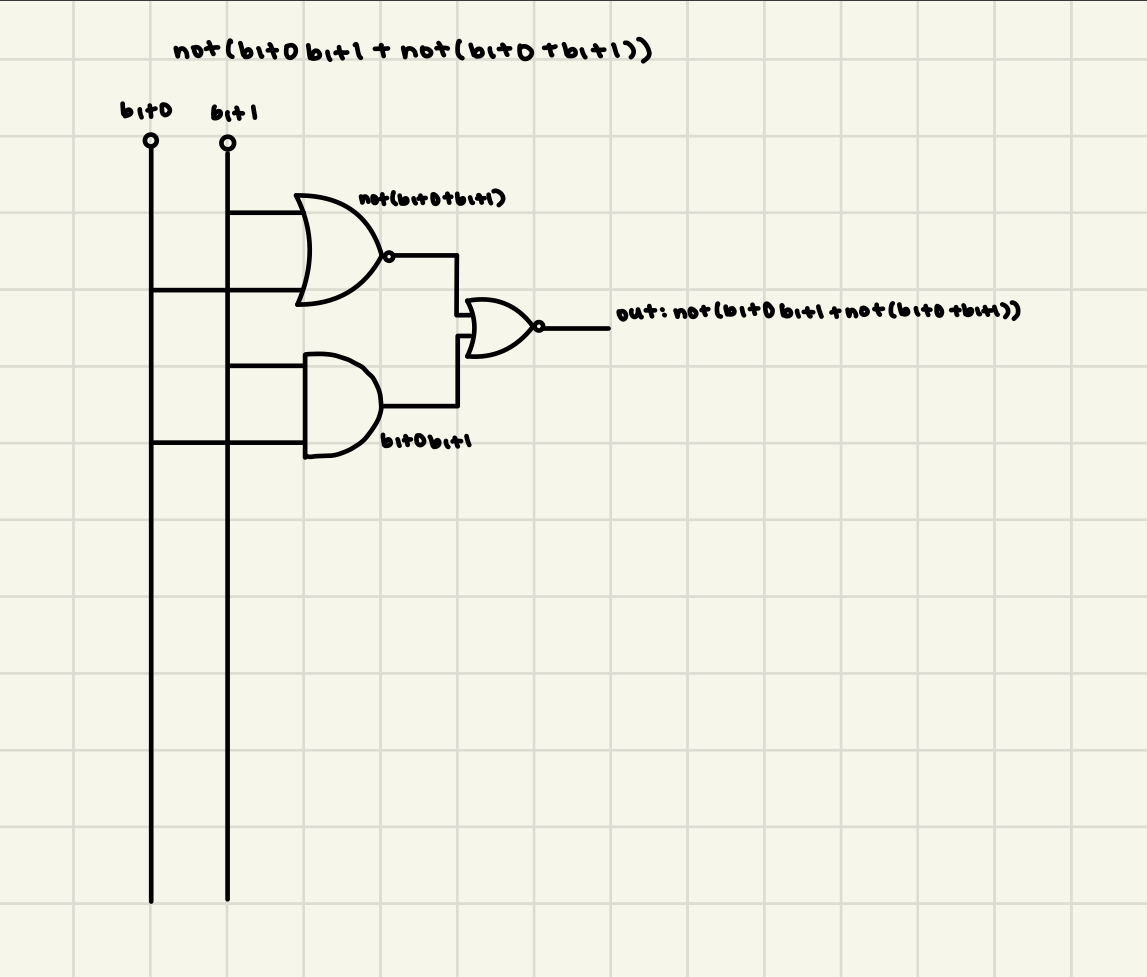 not(bit0 bit1 + not(bit0 + bit1))
bit0 bit1
not(bit0+bit1)
out: not(bit0 bit1 + not(bit0 + bit1))
bit0 bit1